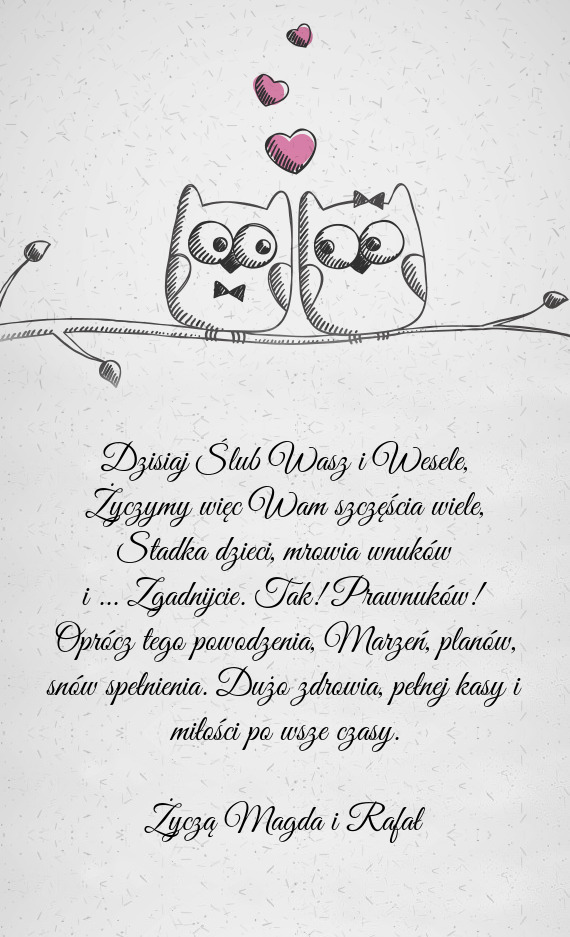 Dzisiaj Ślub Wasz i Wesele,
Życzymy więc Wam szczęścia wiele,
Stadka dzieci, mrowia wnuków
i ... Zgadnijcie. Tak! Prawnuków!
Oprócz tego powodzenia, Marzeń, planów,
snów spełnienia. Dużo zdrowia, pełnej kasy i
miłości po wsze czasy.

Życzą Magda i Rafał